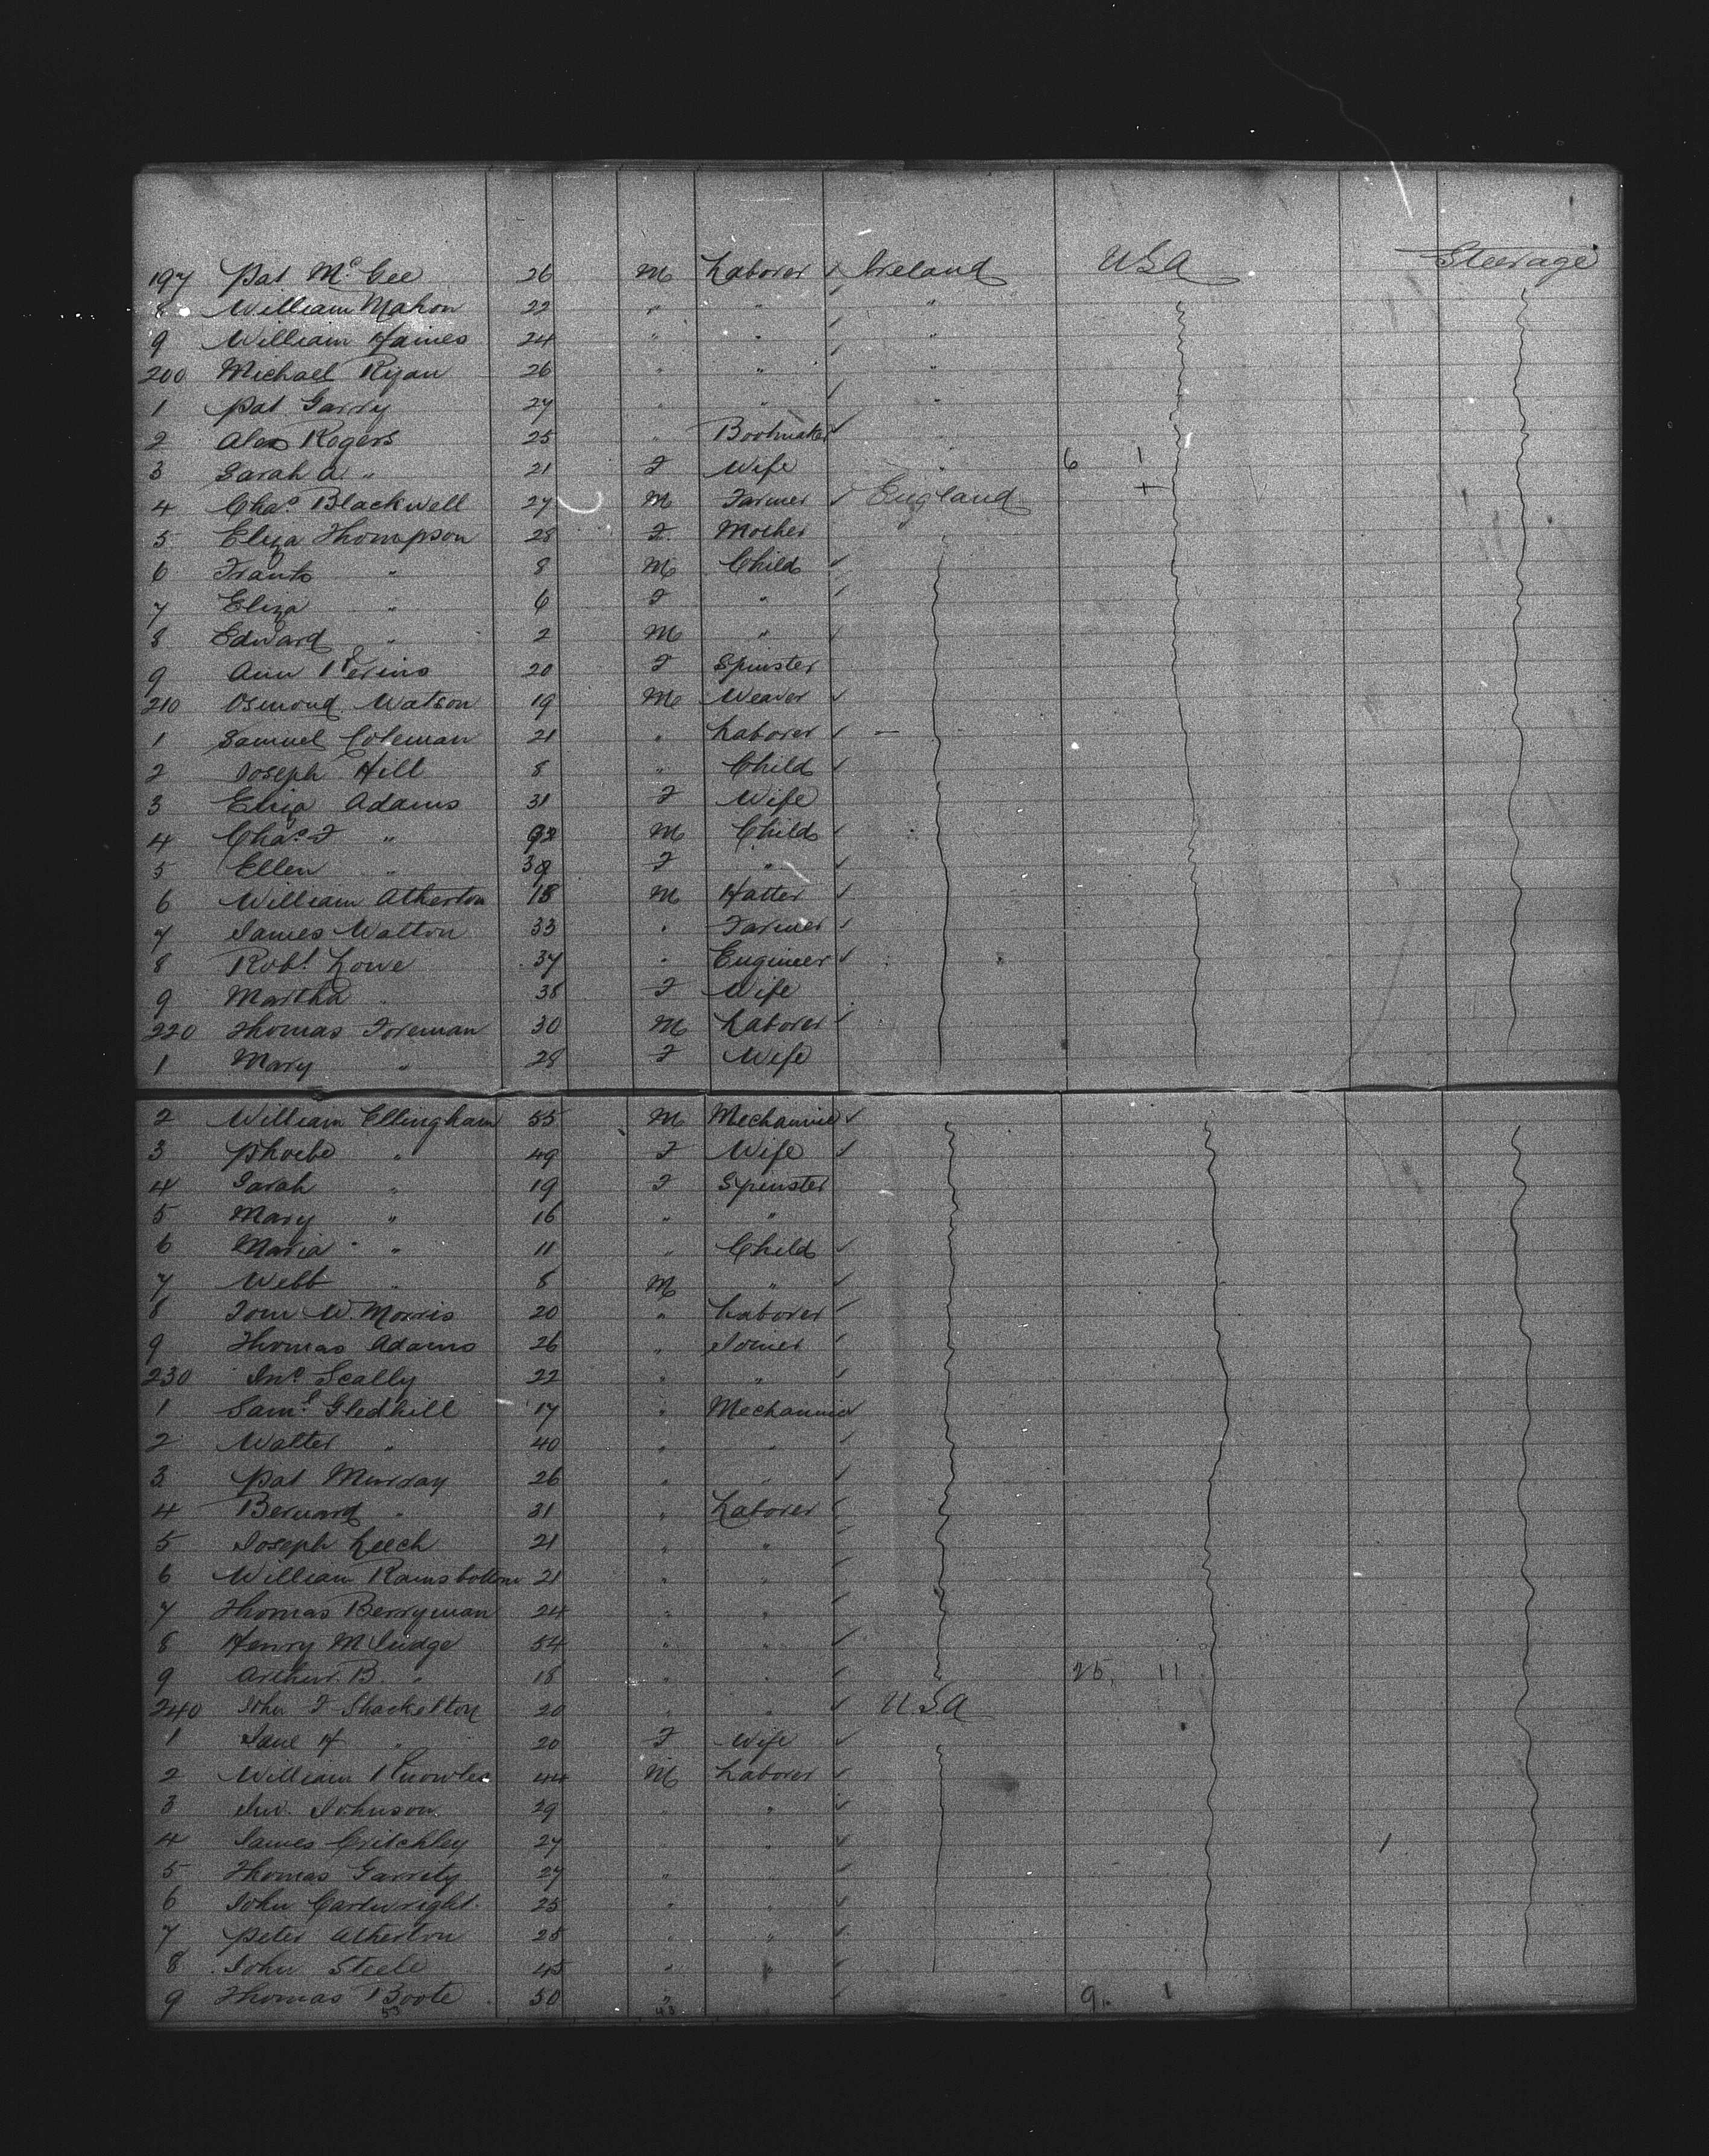 197 Pat McGee 26 M Laborer ✓ Ireland USA Steerage
8 William Mahon 22 " " ✓ "
9 William Haines 24 " " ✓ "
200 Michael Ryan 26 " " ✓ "
1 Pat Garry 27 " " ✓ "
2 Alex Rogers 25 " Bootmaker ✓
3 Sarah A. " 21 F Wife " 6 1
4 Chas Blackwell 27 M Farmer ✓ England +
5 Eliza Thompson 28 F. Mother
6 Frank " 8 M Child ✓
7 Eliza " 6 F " ✓
8 Edward " 2 M " ✓
9 Ann 20 F Spinster
210 Osmond Watson 19 M Weaver ✓
1 Samuel Coleman 21 " Laborer ✓ —
2 Joseph Hill 8 " Child ✓
3 Eliza Adams 31 F Wife
4 Chas F " M Child ✓
5 Ellen " F " ✓
6 William Atherton 18 M Hatter ✓
7 James Walton 33 " Farmer ✓
8 Robt Lowe 37 " Engineer ✓
9 Martha " 38 F Wife
220 Thomas Foreman 30 M Laborer ✓
1 Mary " 28 F Wife
2 William Ellingham 55 M Mechannic ✓
3 Phoebe " 49 F Wife ✓
4 Sarah " 19 F Spinster
5 Mary " 16 " "
6 Maria " 11 " Child ✓
7 Webb " 8 M " ✓
8 Tom W. Morris 20 " Laborer ✓
9 Thomas Adams 26 " Joiner ✓
230 Jno Scally 22 " " ✓
1 Saml Gledhill 17 " Mechannic ✓
2 Walter " 40 " " ✓
3 Pat Murray 26 " " ✓
4 Bernard " 31 " Laborer ✓
5 Joseph Leech 21 " " ✓
6 William Ramsbottom 21 " " ✓
7 Thomas Berryman 24 " " ✓
8 Henry 54 " " ✓
9 Arthur. B. " 18 " " ✓ 25, 11
240 John F Shackelton 20 " " ✓ U.S.A
1 Jane H " 20 F Wife ✓
2 William Knowles 44 M Laborer ✓
3 Jno. Johnson 29 " " ✓
4 James Critchley 27 " " ✓ 1
5 Thomas Garrety 27 " " ✓
6 John Cartwright. 25 " " ✓
7 Peter Atherton 28 " " ✓
8 John Steele 45 " " ✓
9 Thomas Boote 50 " " ✓ 9. 1
53 43